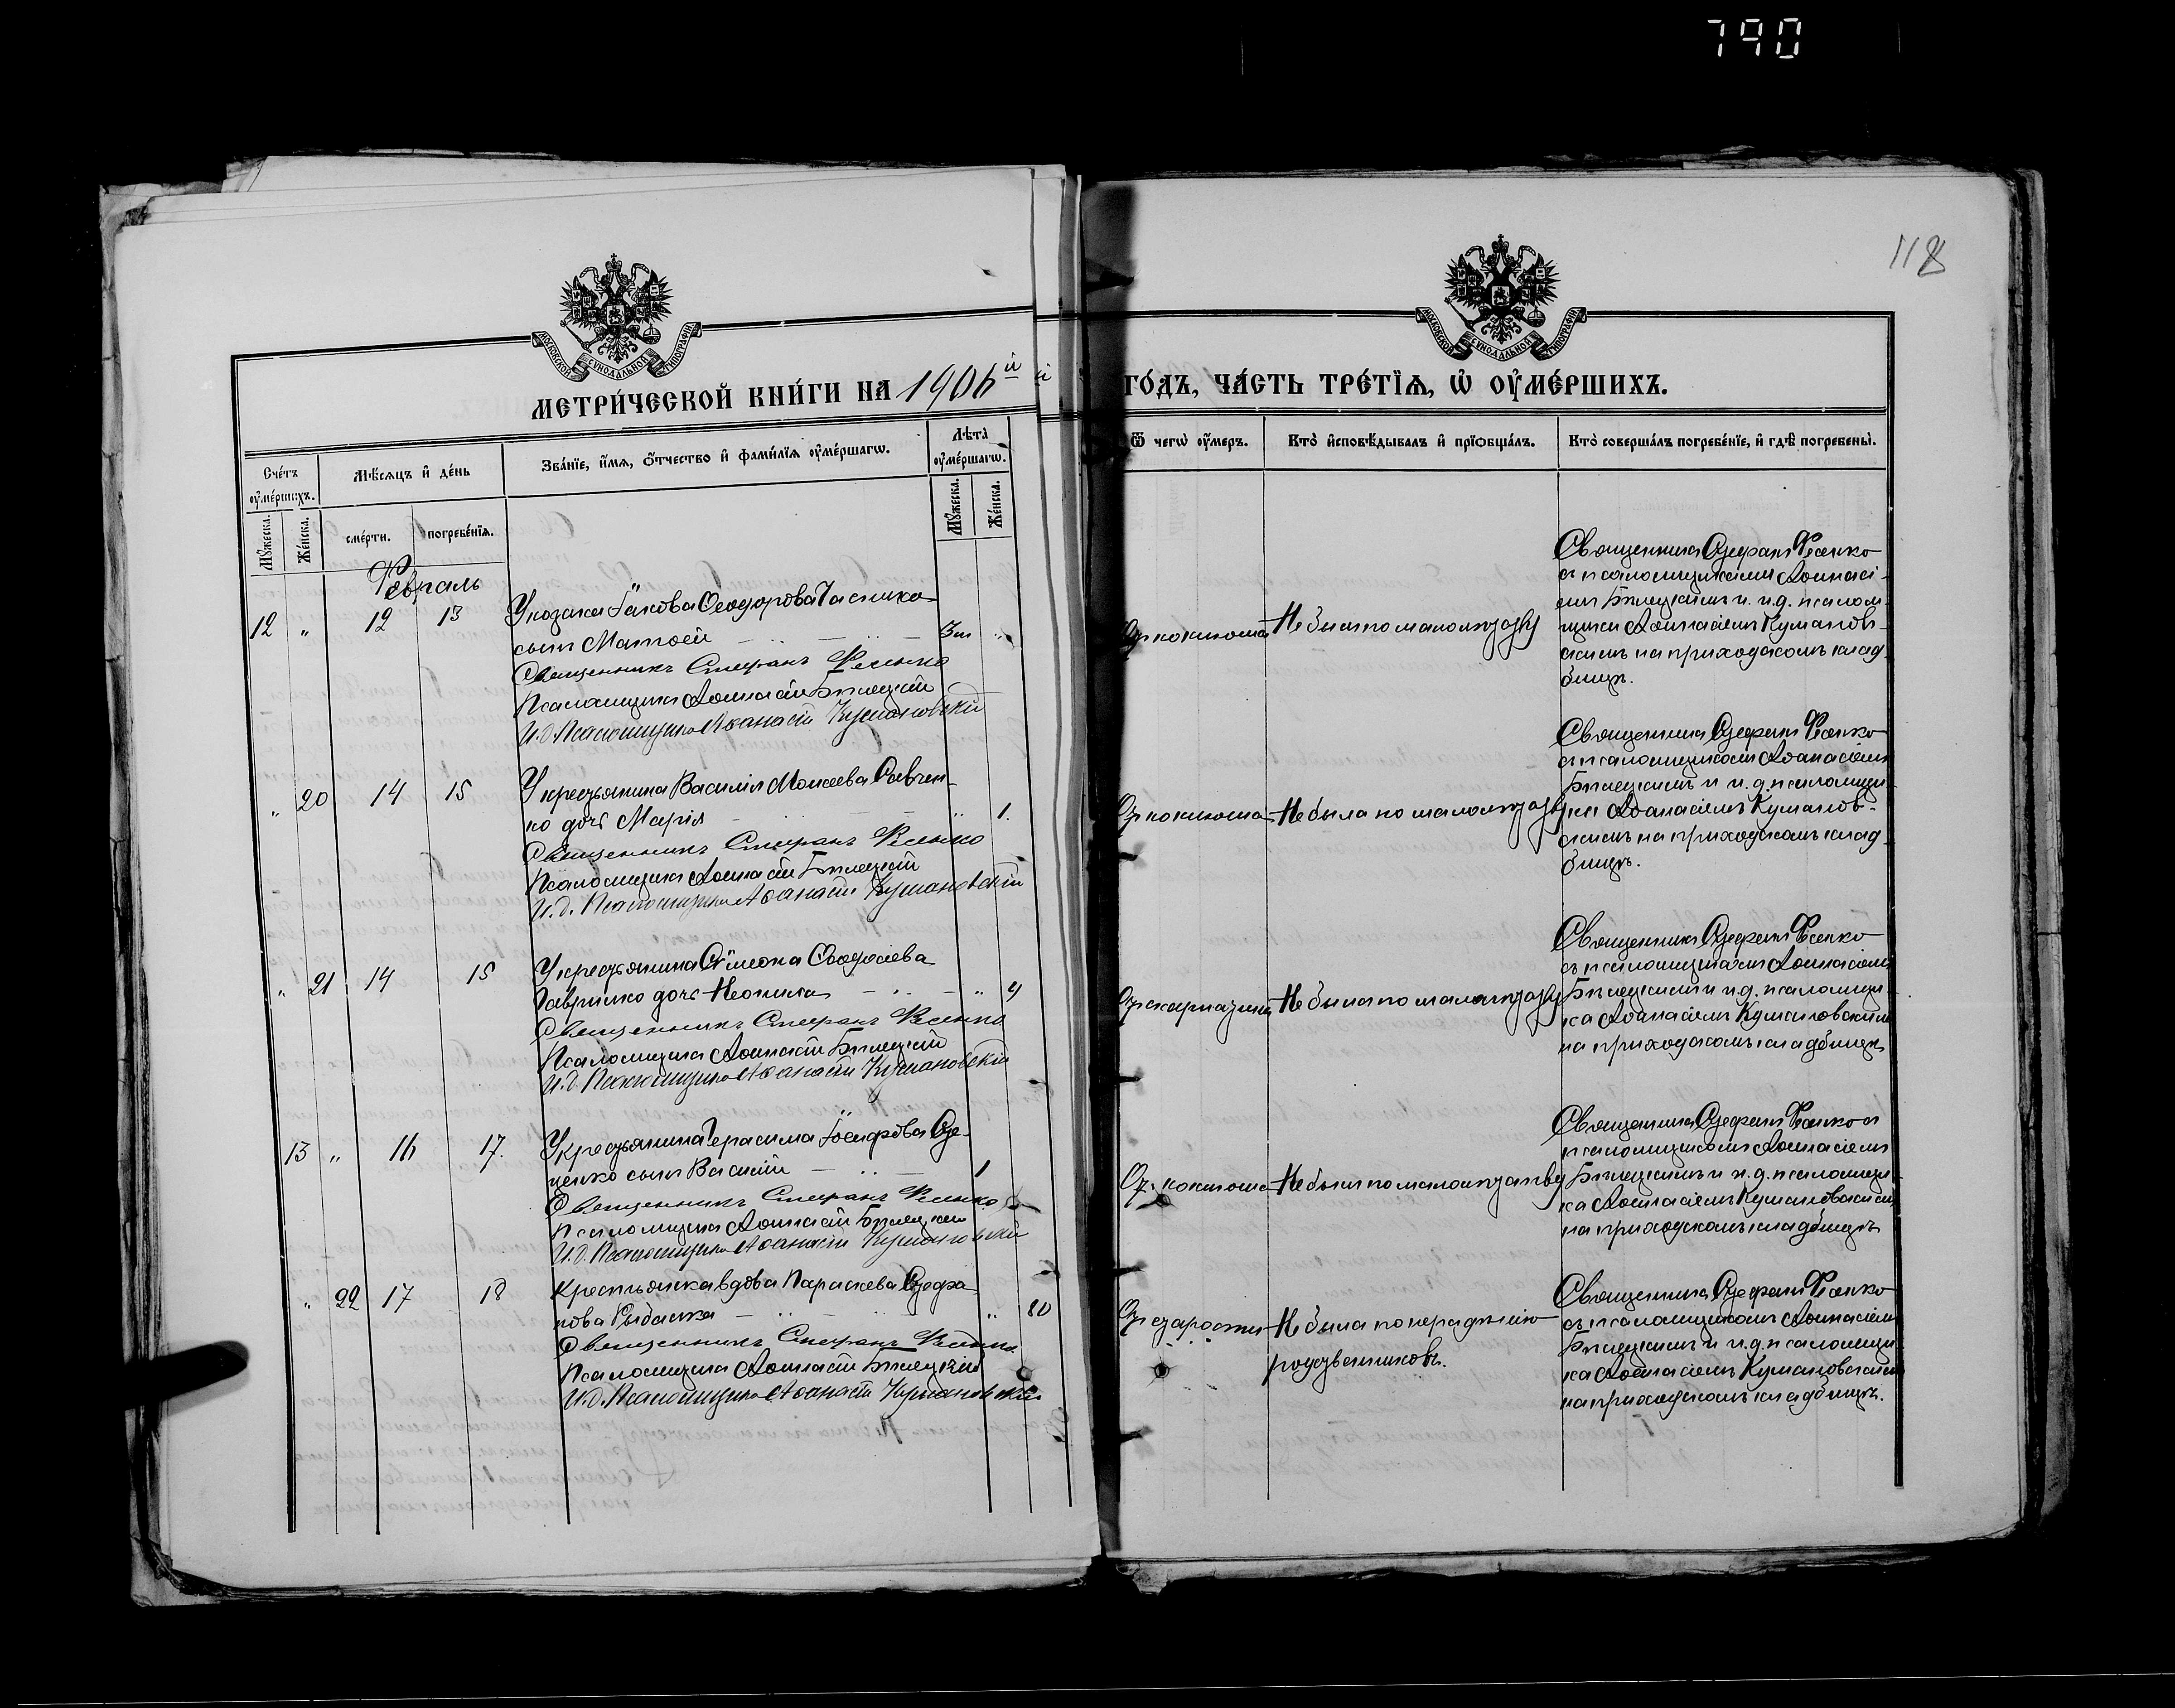 790
118
МОСКОВСКОЙ СѴНОДАЛЬНОЙ ТИПОГРАФІИ
МОСКОВСКОЙ СѴНОДАЛЬНОЙ ТИПОГРАФІИ
МЕТРИ́ЧЕСКОЙ КНИ́ГИ НА 1906й
ГО́ДЪ, ЧА́СТЬ ТРЕ́ТЇѦ, Ѡ҆ ОУ҆МЕ́РШИХЪ.
Сче́тъ оу҆ме́ршихъ.
Мѣ́сѧцъ и҆ де́нь
Зва́нїе, и҆́мѧ, ѻ҆́тчество и҆ фами́лїѧ оу҆ме́ршагѡ.
Лѣ́та оу҆ме́ршагѡ.
Ѿ чегѡ̀ оу҆́меръ.
Кто̀ и҆сповѣ́дывалъ и҆ прїѡбща́лъ.
Кто̀ соверша́лъ погребе́нїе, и҆ гдѣ̀ погребены̀.
Мꙋ́жеска.
Же́нска.
сме́рти.
погребе́нїѧ.
Мꙋ́жеска.
Же́нска.
Февраль
12 " 12 13 У козака Іакова Ѳеодорова
сынъ Матѳей 3м "
Священникъ Стефанъ Фесенко
Псаломщикъ Аѳанасій Бѣлецкій
И. д. Псаломщика Аѳанасій Кумановскій
Отъ коклюша
Не былъ по малолѣтству
Священникъ Стефанъ Фесенко
съ псаломщиками Аѳанасі-
емъ Бѣлецкимъ и и. д. псалом-
щика Аѳанасіемъ Куманов-
скимъ на приходскомъ клад-
бищѣ.
" 20 14 15 У крестьянина Василія Моисеева Савчен-
ко дочь Марія " 1.
Священникъ Стефанъ Фесенко
Псаломщикъ Аѳанасій Бѣлецкій
И. д. Псаломщика Аѳанасій Кумановскій
Отъ коклюша
Не была по малолѣтству
Священникъ Стефанъ Фесенко
съ псаломщикомъ Аѳанасіемъ
Бѣлецкимъ и и. д. псаломщи-
ка Аѳанасіемъ Куманов-
скимъ на приходскомъ клад-
бищѣ.
" 21 14 15 У крестьянина Сѵмеона Ѳеодосіева
Гаврилко дочь Неонила " 4
Священникъ Стефанъ Фесенко
Псаломщикъ Аѳанасій Бѣлецкій
И. д. Псаломщика Аѳанасій Кумановскій
Отъ скарлатины
Не была по малолѣтству
Священникъ Стефанъ Фесенко
съ псаломщикомъ Аѳанасіемъ
Бѣлецкимъ и и. д. псаломщи-
ка Аѳанасіемъ Кумановскимъ
на приходскомъ кладбищѣ
13 " 16 17. У крестьянина Герасима Іосифова Сте-
ценко сынъ Василій 1
Священникъ Стефанъ Фесенко
Псаломщикъ Аѳанасій Бѣлецкій
И. д. Псаломщика Аѳанасій Кумановскій
Отъ коклюша
Не былъ по малолѣтству
Священникъ Стефанъ Фесенко съ
псаломщикомъ Аѳанасіемъ
Бѣлецкимъ и и. д. псаломщи-
ка Аѳанасіемъ Кумановскимъ
на приходскомъ кладбищѣ
" 22 17 18 Крестьянка вдова Параскева Стефа-
нова Рыбалка " 80
Священникъ Стефанъ Фесенко
Псаломщикъ Аѳанасій Бѣлецкій
И. д. Псаломщика Аѳанасій Кумановскій
Отъ старости
Не была по нерадѣнію
родственниковъ.
Священникъ Стефанъ Фесенко
съ псаломщикомъ Аѳанасіемъ
Бѣлецкимъ и и. д. псаломщи-
ка Аѳанасіемъ Кумановскимъ
на приходскомъ кладбищѣ.